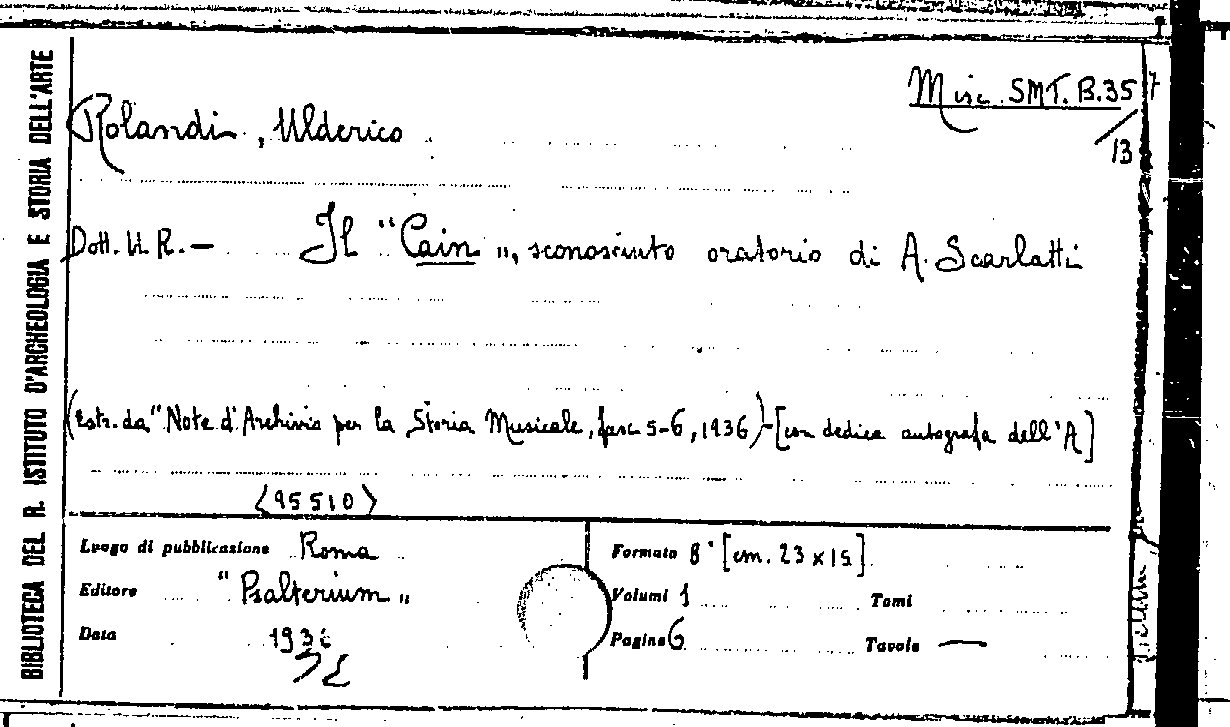 BIBLIOTECA DEL R. ISTITUTO D'ARCHEOLOGIA E STORIA DELL'ARTE
Misc. SMT. B.35
13
Rolandi, Ulderico
Dott. U. R. — Il "Cain", sconosciuto oratorio di A. Scarlatti
(Estr. da "Note d'Archivio per la Storia Musicale, fasc 5-6, 1936) - [con dedica autografa dell'A]
<95510>
Luogo di pubblicazione Roma
Editore "Psalterium"
Data 1936
Formato 8° [cm. 23 x 15]
Volumi 1 Tomi
Pagine 6 Tavole —